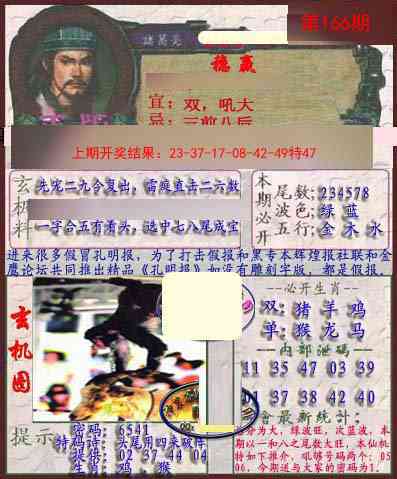 第166期
諸葛亮
稳赢
宜：双，吼大
忌：三前八后
上期开奖结果：23-37-17-08-42-49特47
玄机料
先宠二九合复出，雷痴直击二六数
一字合五有看头，选中七八尾成宝
本期必开
尾数：234578
波色：绿 蓝
五行：金 木 水
进来很多假冒孔明报，为了打击假报和黑专本辉煌报社联和金
鹰论坛共同推出精品《孔明报》如没有雕刻字版，都是假报。
玄机图
必开生肖
双：猪 羊 鸡
单：猴 龙 马
内部泄码
11 35 47 03 39
01 37 38 42 40
會最新统计：
分为大，绿波旺，次蓝波，本
期以一和八之尾数大旺，本仙机
特如下推介，吼够号码两个：05
06，今期送与大家的密码为1.
提示
密码：6541
特码诗：头尾用四来破阵
提供：02 37 44 04
生肖：鸡，猴